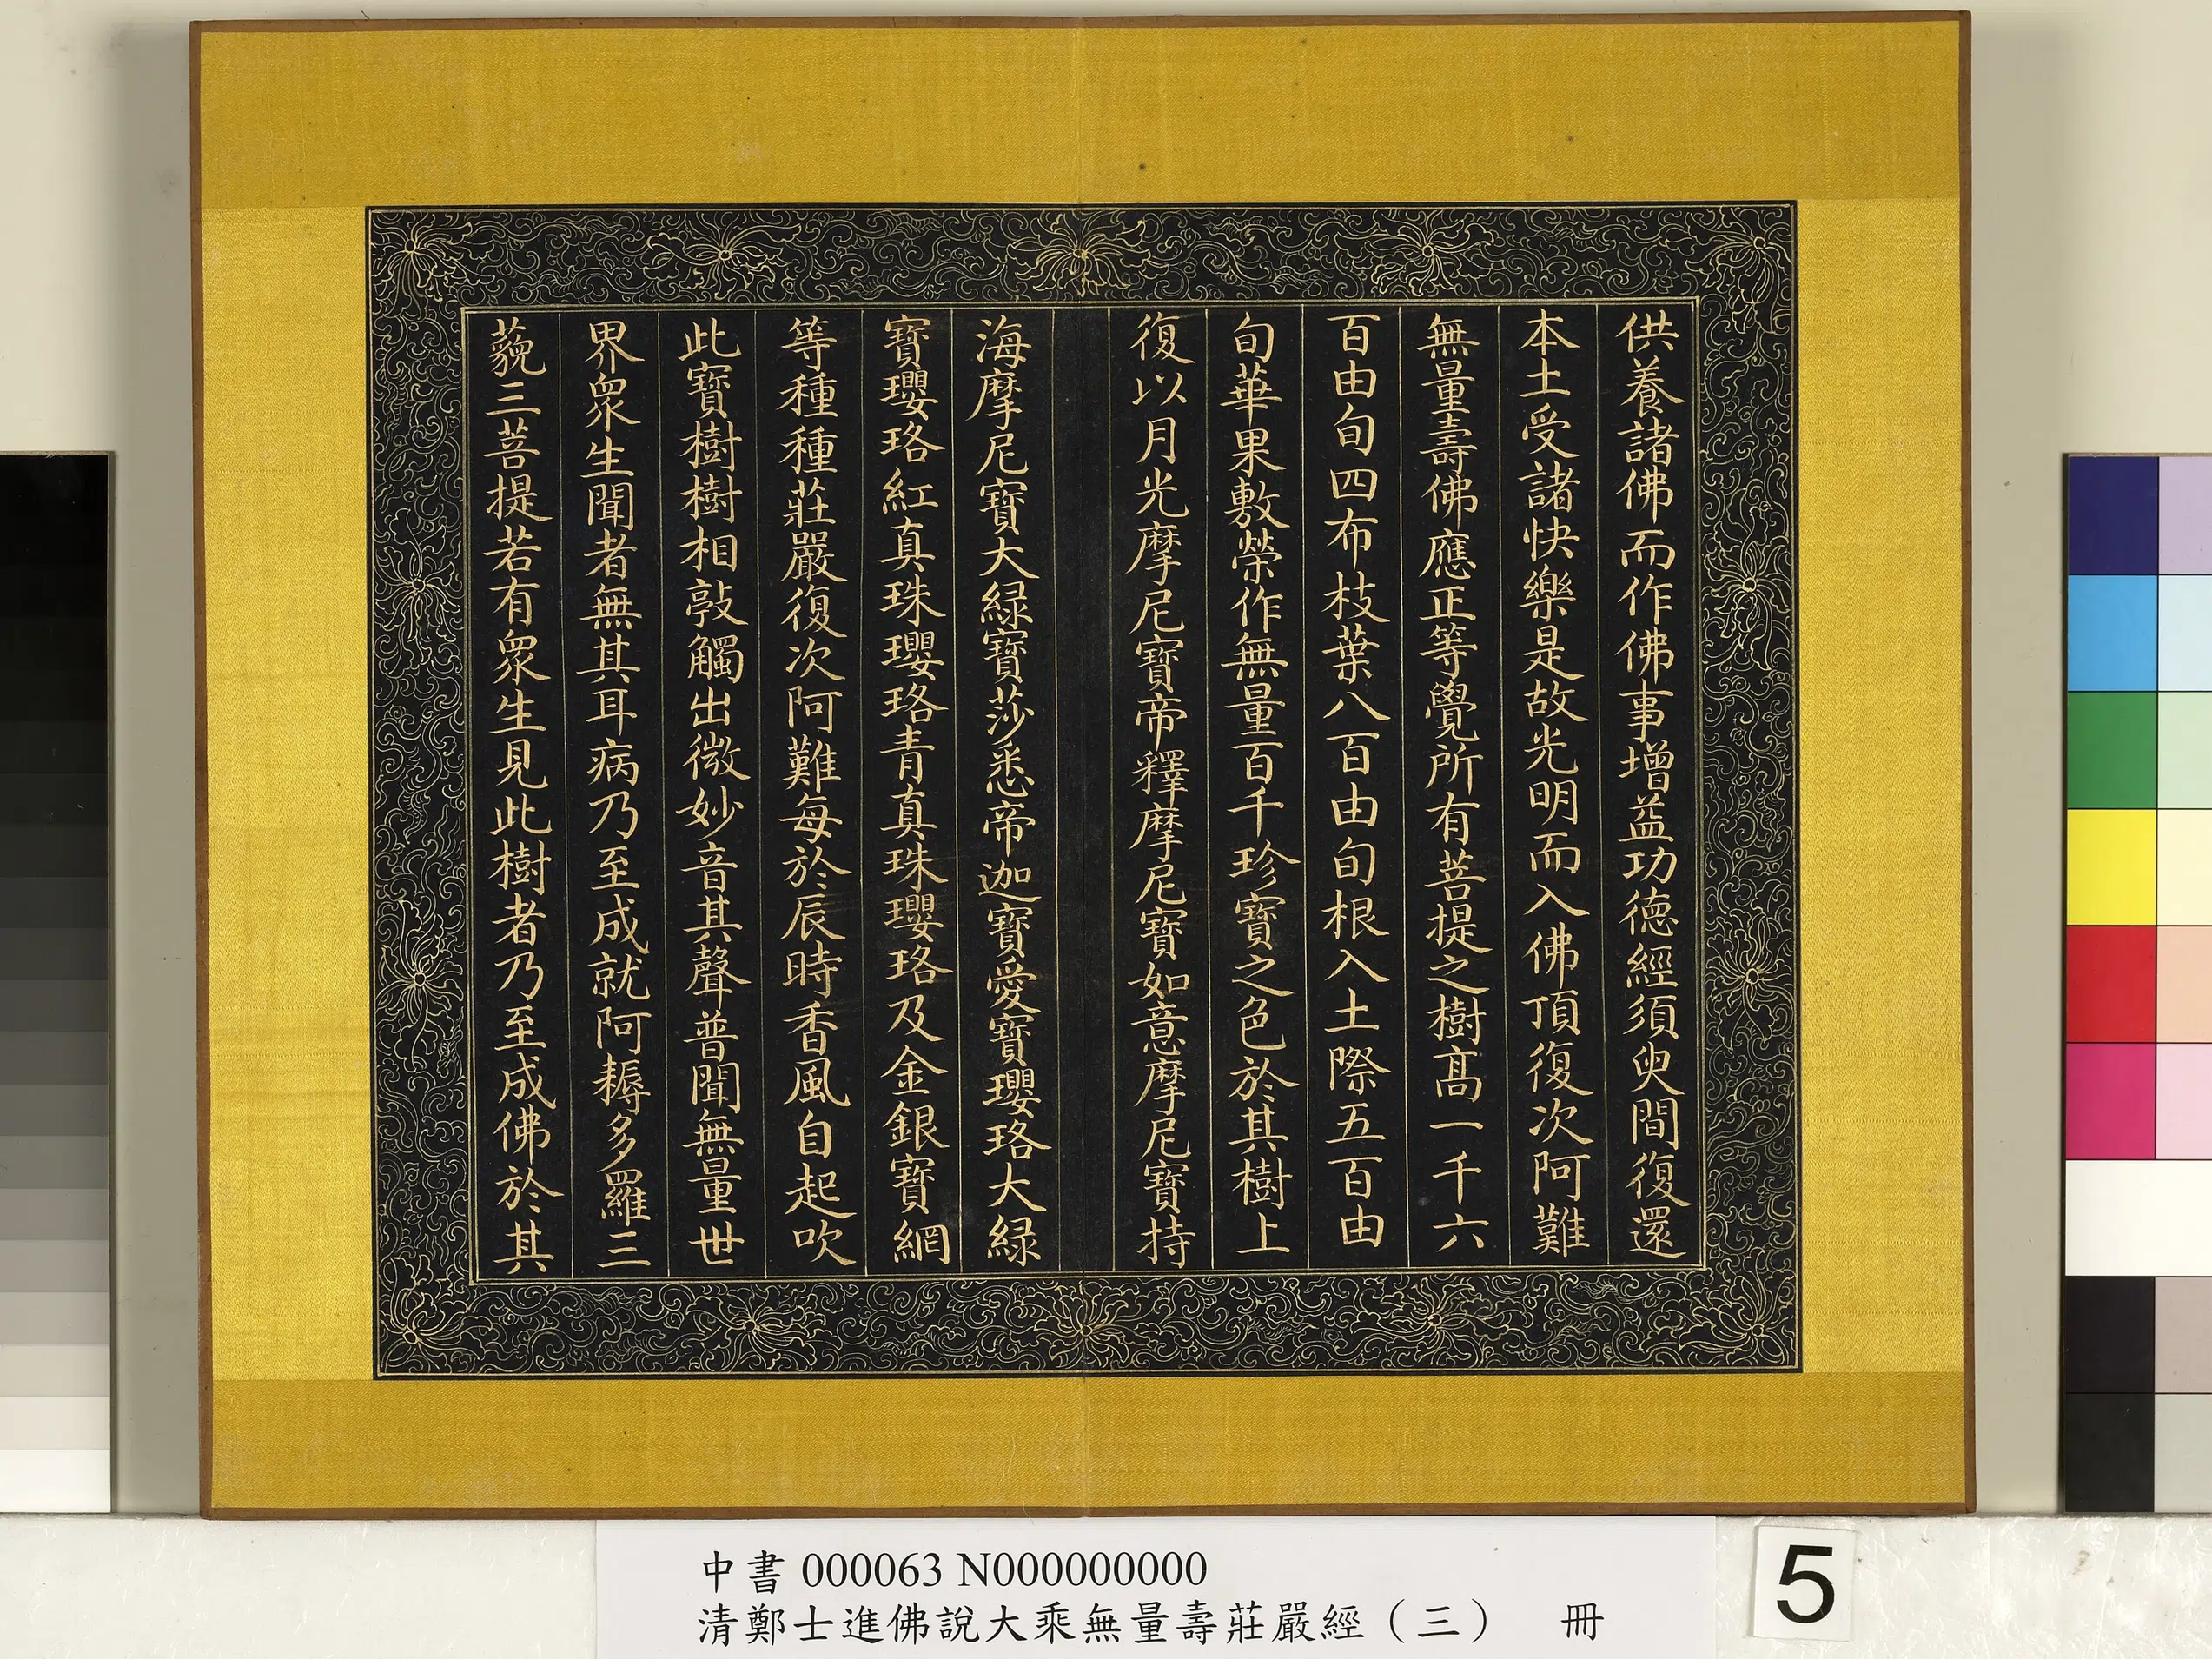 供養諸佛而作佛事增益功德經須臾間復還
本土受諸快樂是故光明而入佛頂復次阿難
無量壽佛應正等覺所有菩提之樹高一千六
百由旬四布枝葉八百由旬根入土際五百由
旬華果敷榮作無量百千珍寶之色於其樹上
復以月光摩尼寶帝釋摩尼寶如意摩尼寶持
海摩尼寶大緑寶莎悉帝迦寶愛寶瓔珞大緑
寶瓔珞紅真珠瓔珞青真珠瓔珞及金銀寶網
等種種莊嚴復次阿難每於辰時香風自起吹
此寶樹樹相敲觸出微妙音其聲普聞無量世
界眾生聞者無其耳病乃至成就阿耨多羅三
藐三菩提若有眾生見此樹者乃至成佛於其
中書 000063 N000000000
清鄭士進佛說大乘無量壽莊嚴經（三） 冊
5